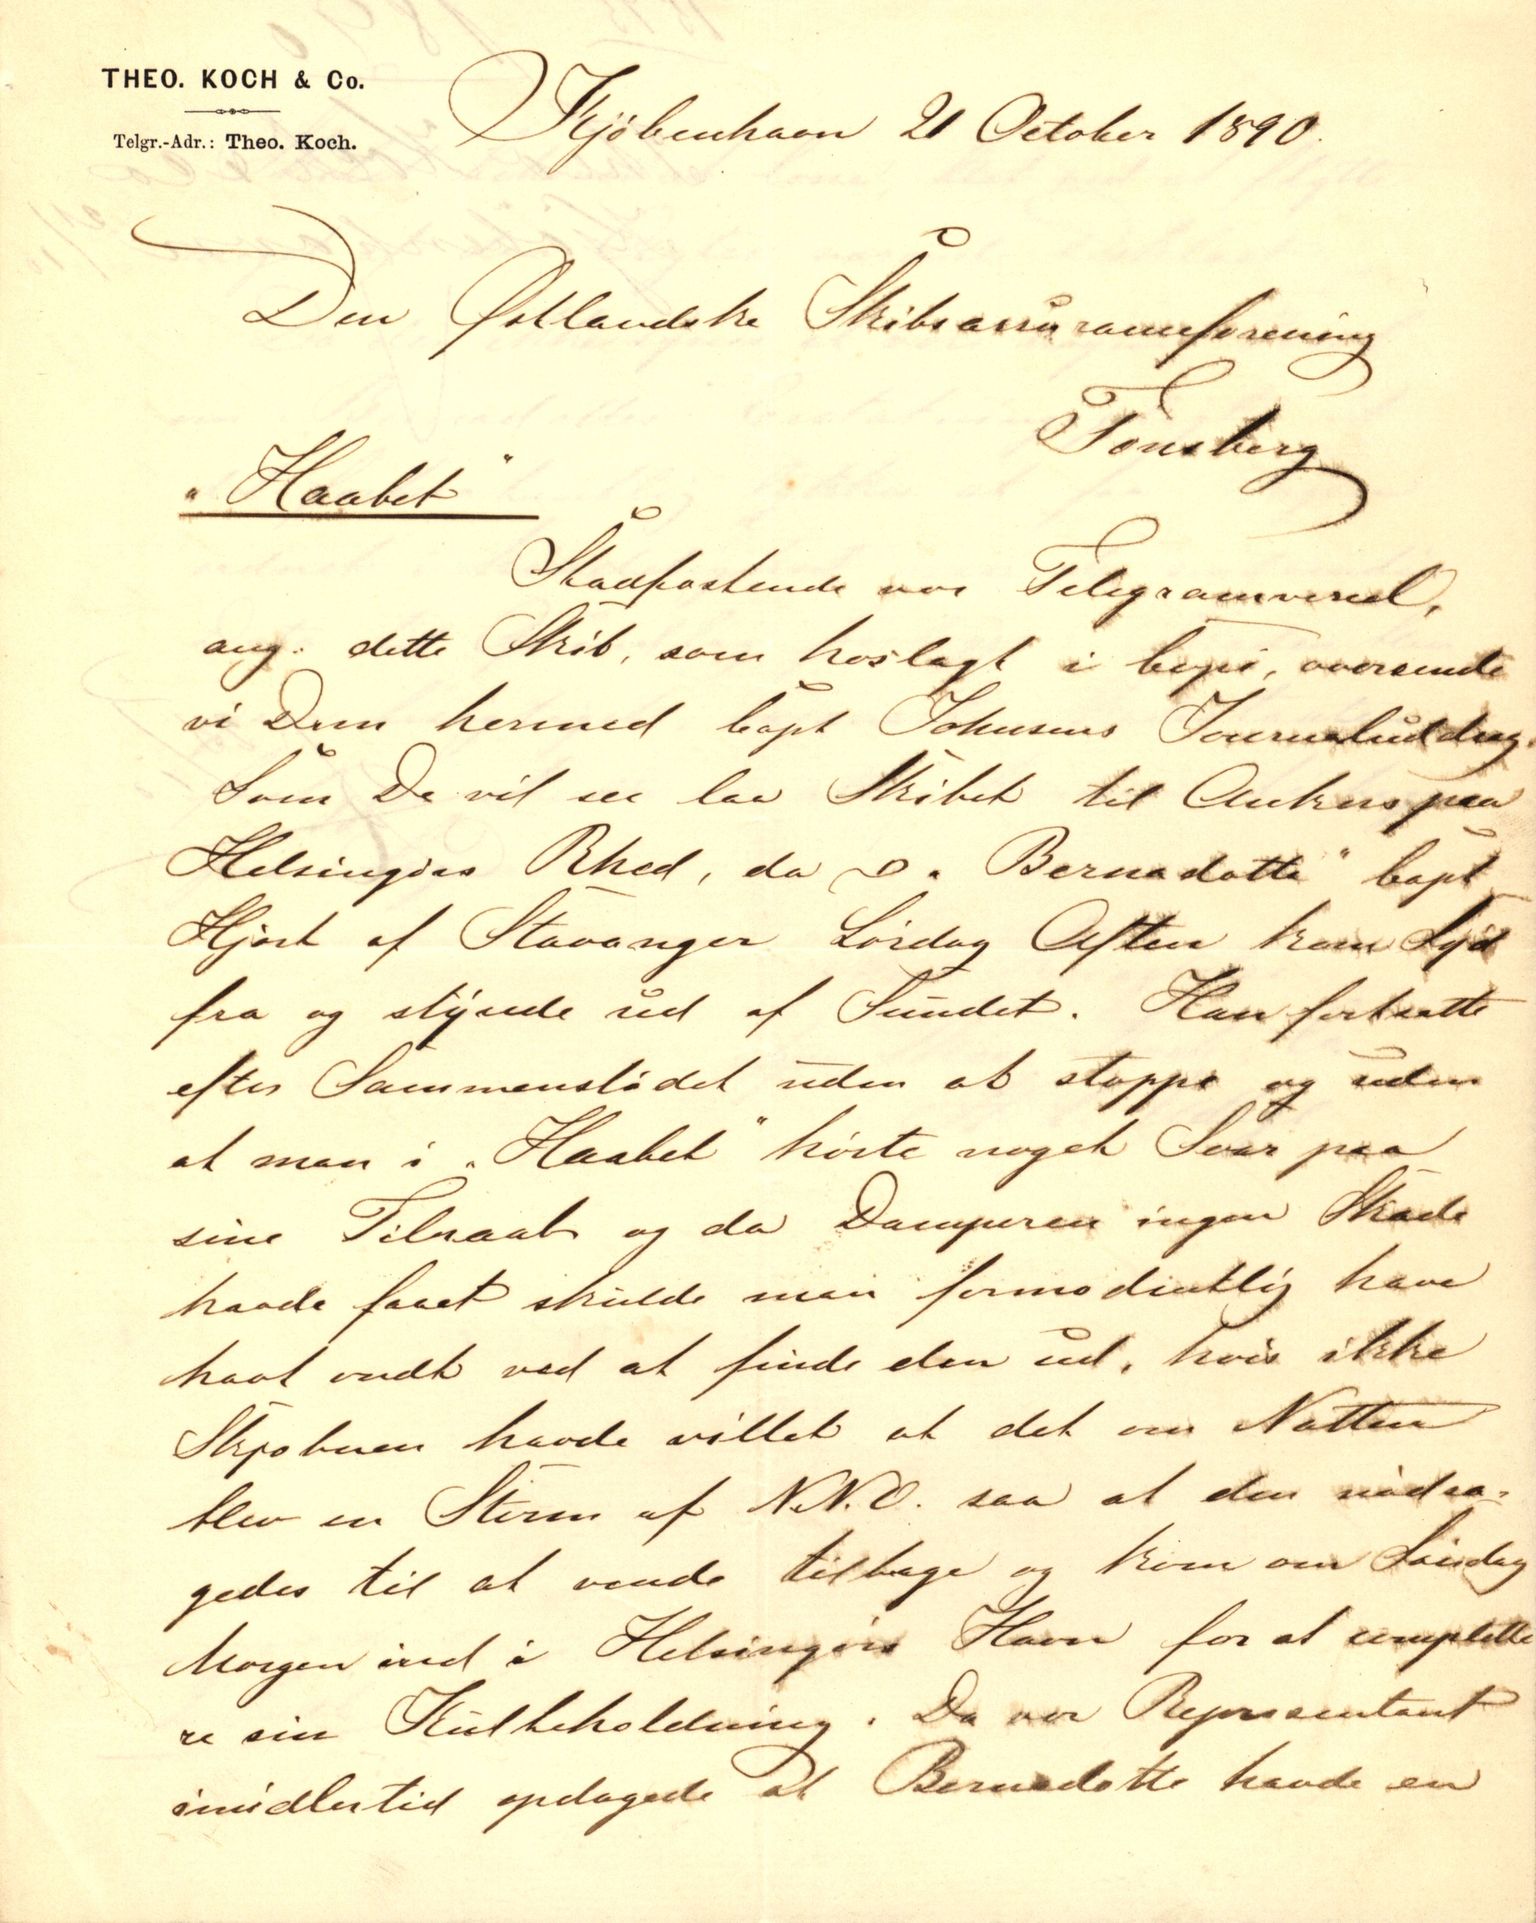 THEO. KOCH & Co.
Telgr.-Adr.: Theo. Koch.
Kjöbenhavn 21 October 1890.
Den Østlandske Skibsassuranceforening
Tönsberg
"Haabet"
Stadfæstende vor Telegramvexel,
ang. dette Skib, som hoslagt i Copi, oversende
vi Dem hermed Capt Johnsens Journaluddrag.
Som De vil se laa Skibet til Ankers paa
Helsingörs Rhed, da D. "Bernadotte" Capt
Hjort af Stavanger Lördag Aften kom Syd
fra og styrede ud af Sundet. Han fortsatte
efter Sammenstödet uden at stoppe og uden
at man i "Haabet" hörte noget Svar paa
sine Tilraab og da Damperen ingen Skade
havde faaet skulde man formodentlig have
havt ondt ved at finde den ud, hvis ikke
Skjæbnen havde villet at det om Natten
blev en Storm af N.N.O. saa at den nödsa-
gedes til at vende tilbage og kom om Söndag
Morgen ind i Helsingörs Havn for at complette
re sin Kulbeholdning. Da vor Repræsentant
imidlertid opdagede at Bernadotte havde en